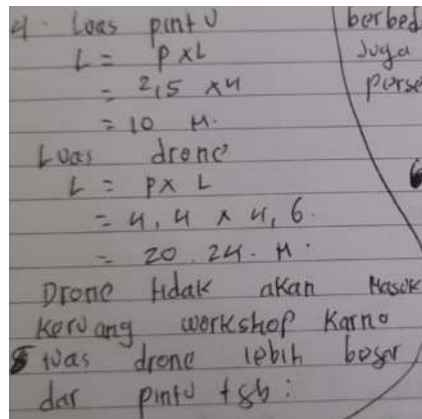 4. Luas pintu
L = P x L
= 2,5 x 4
= 10 M.
Luas drone
L = P x L
= 4,4 x 4,6.
= 20.24. M.
Drone tidak akan Masuk
keruang workshop Karno
luas drone lebih beser
dar pintu tsb:
berbed
Juga
Perse